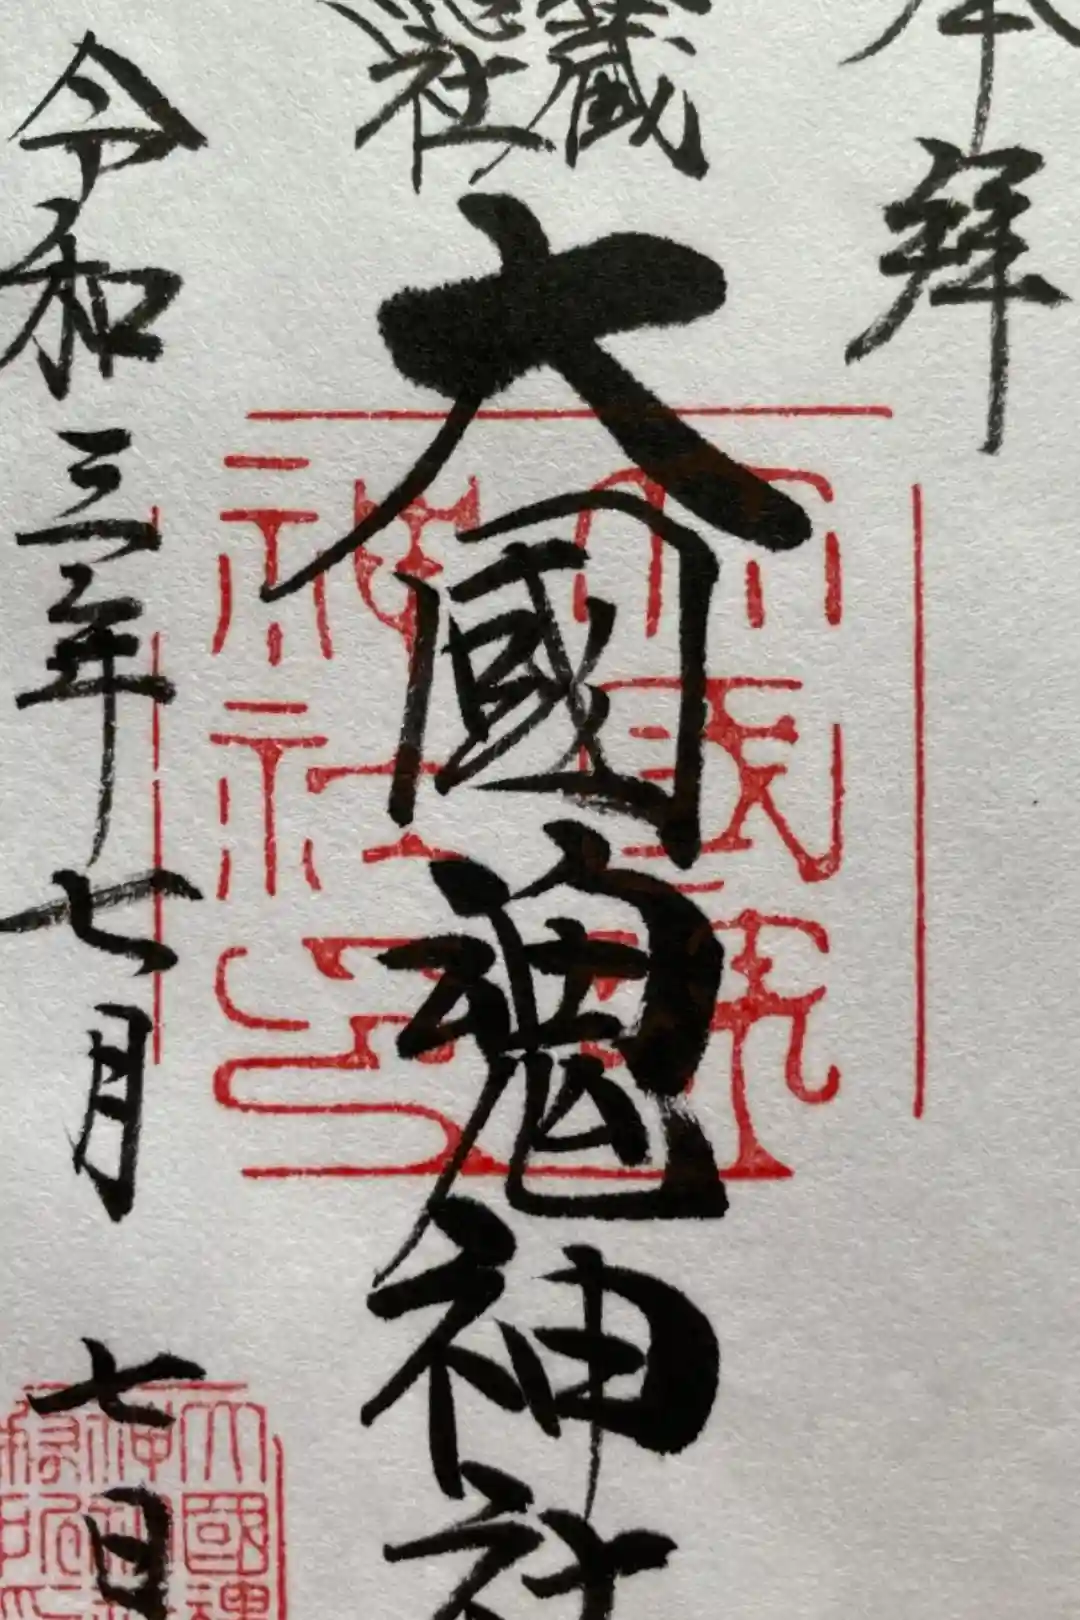 奉拝
蔵
總社
大國魂神社
令和三年七月七日
大國魂
神社印
大國魂
神社